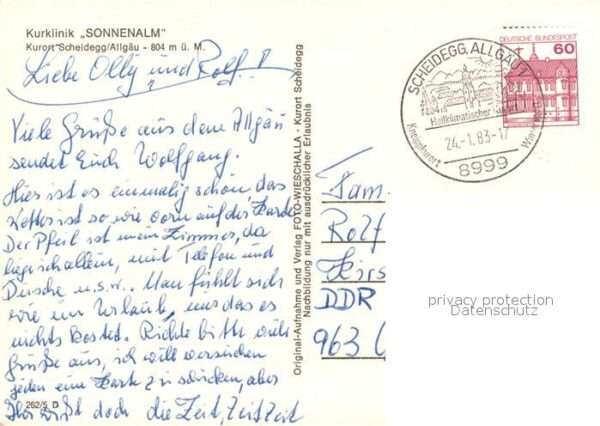 Kurklinik „SONNENALM"
Kurort Scheidegg/Allgäu - 804 m ü. M.
Liebe Olly und Rolf!
Viele Grüße aus dem Allgäu
sendet Euch Wolfgang.
Hier ist es einmalig schön, das
Wetter ist so wie vorn auf der Karte
Der Pfeil ist mein Zimmer, da
liege ich allein, mit Telefon und
Dusche u.s.w. Man fühlt sich
wie im Urlaub, nur das es
nichts kostet. Richte bitte viele
Grüße aus, ich will versuchen
jeden eine Karte zu schicken, aber
Ihr wißt doch die Zeit, Zeit Zeit
262/5 D
Original-Aufnahme und Verlag FOTO-WIESCHALLA · Kurort Scheidegg
Nachbildung nur mit ausdrücklicher Erlaubnis
DEUTSCHE BUNDESPOST
60
SCHEIDEGG, ALLGÄU 1
Heilklimatischer
Kneippkurort
24.-1.83-17
8999
Fam.
Rolf
Hirs
DDR
963
privacy protection
Datenschutz